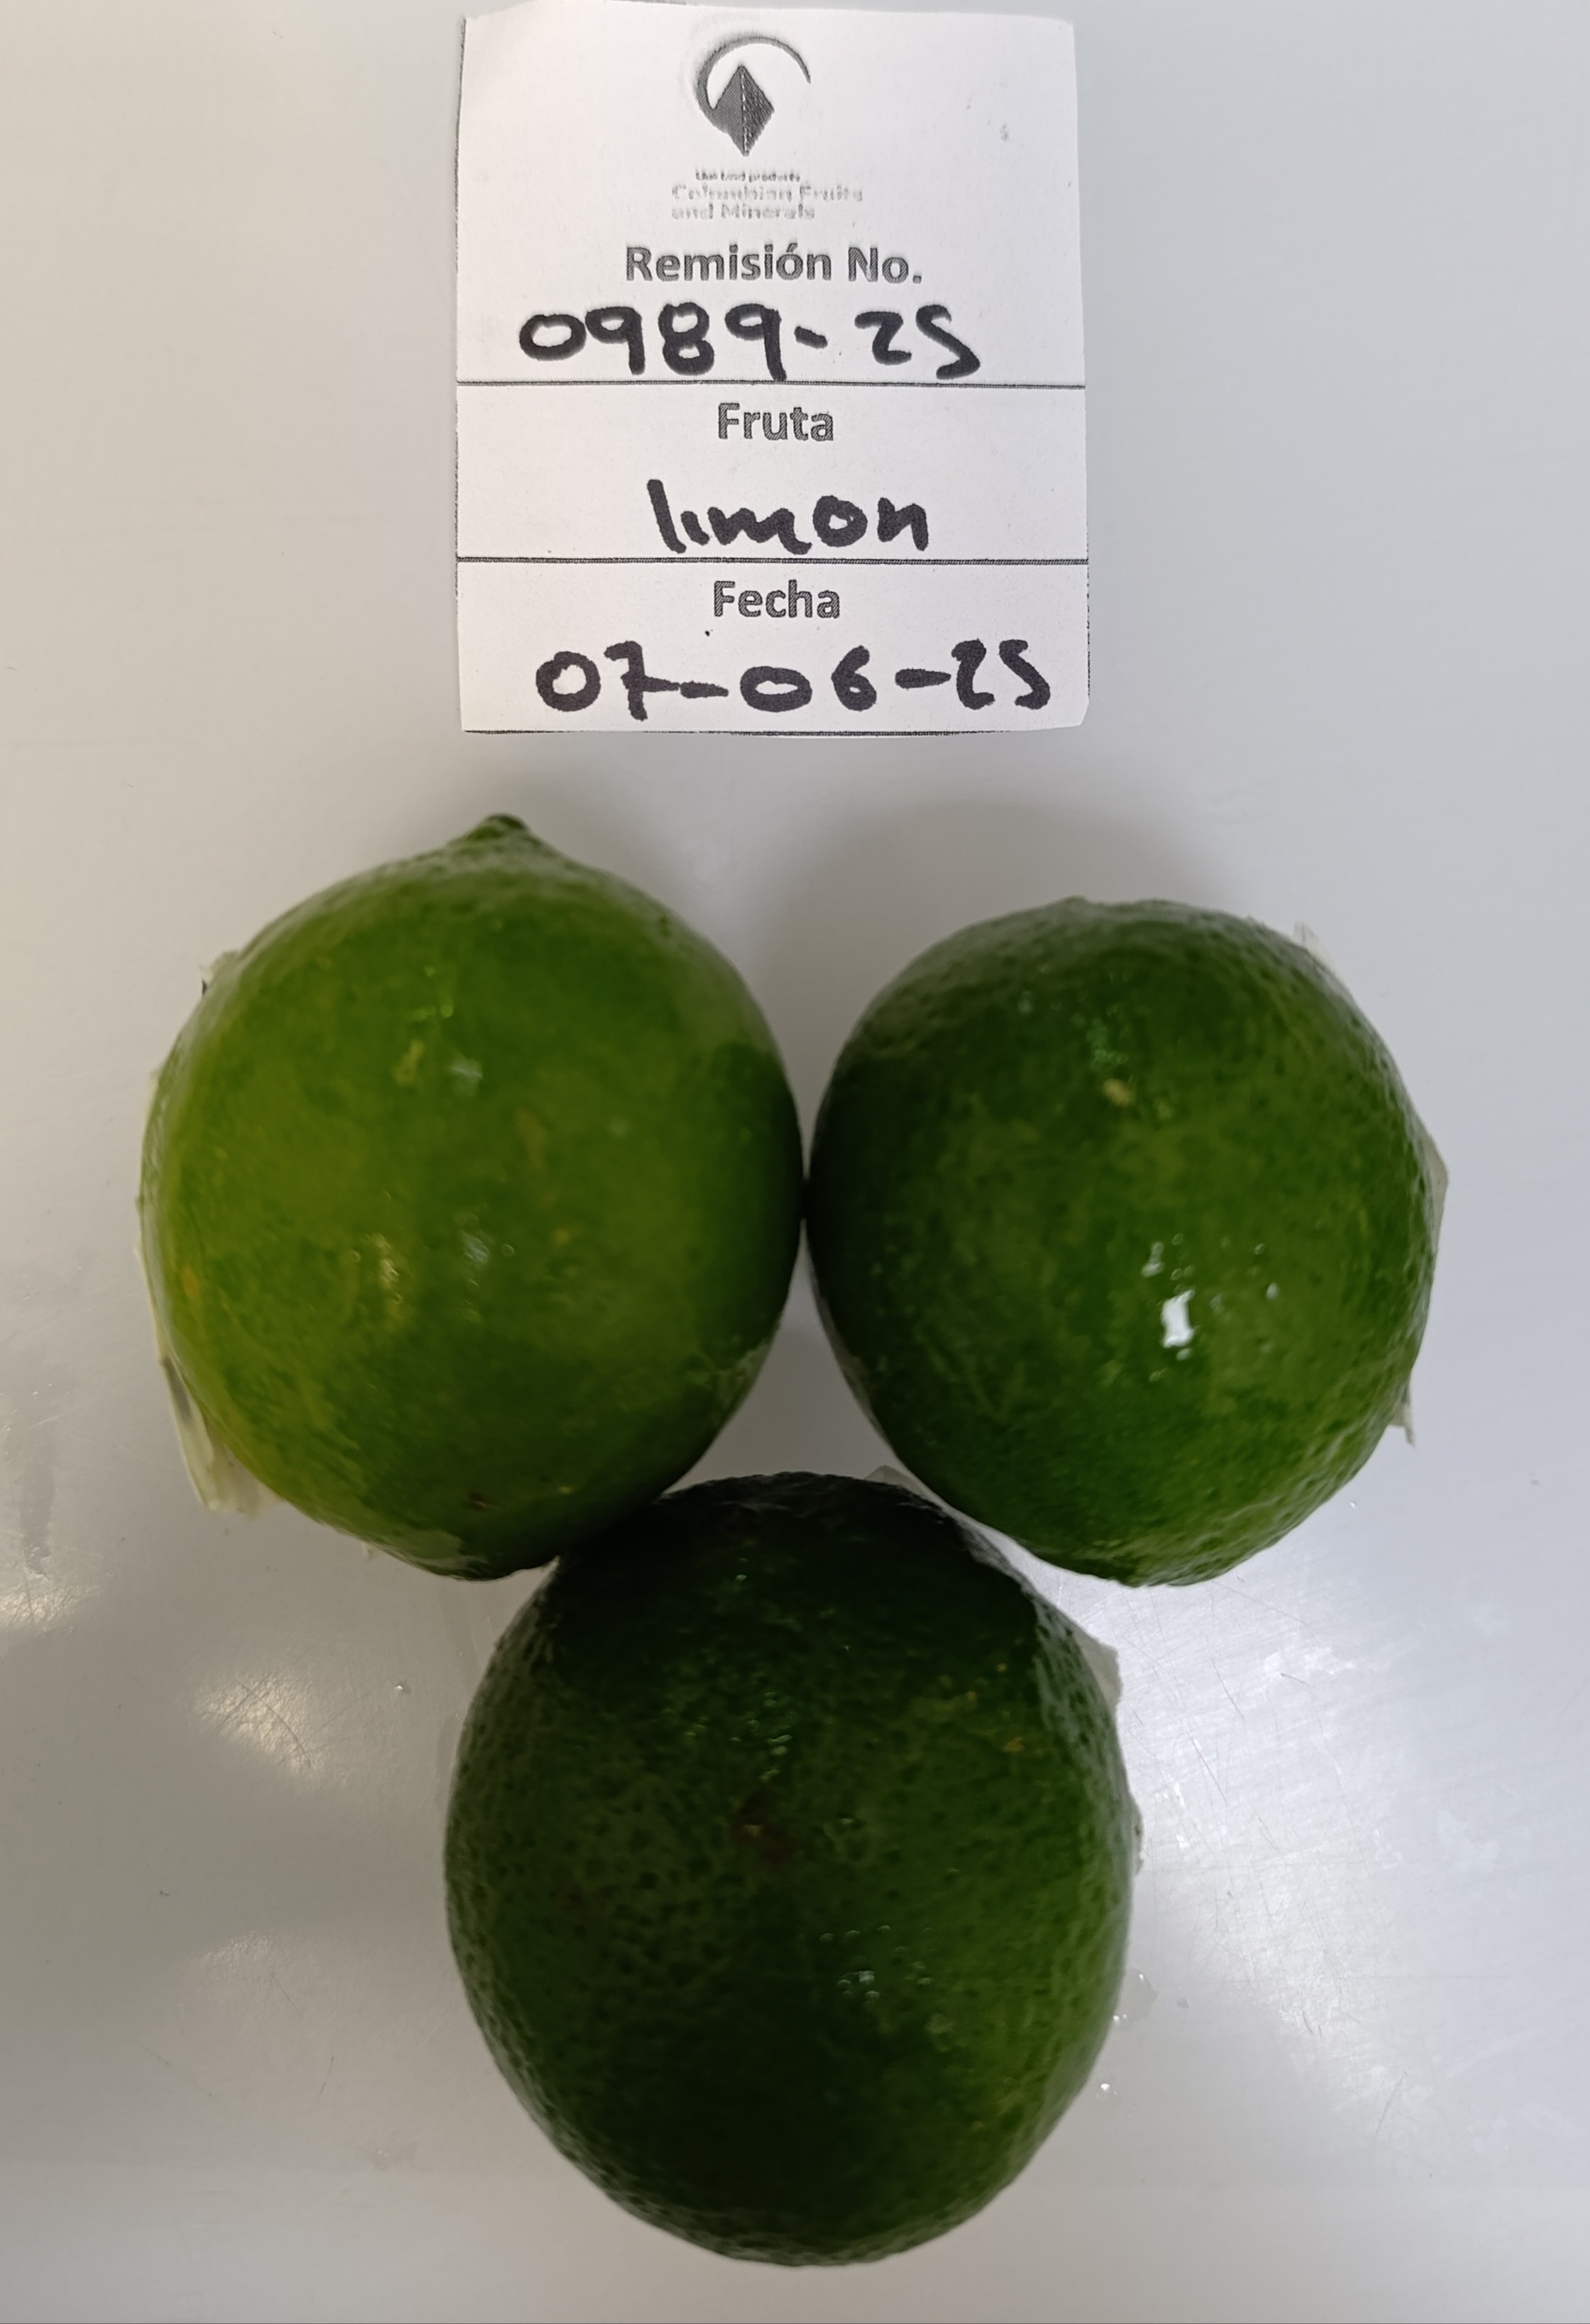 Colombian Fruits
and Minerals
Remisión No.
0989-25
Fruta
limon
Fecha
07-06-25